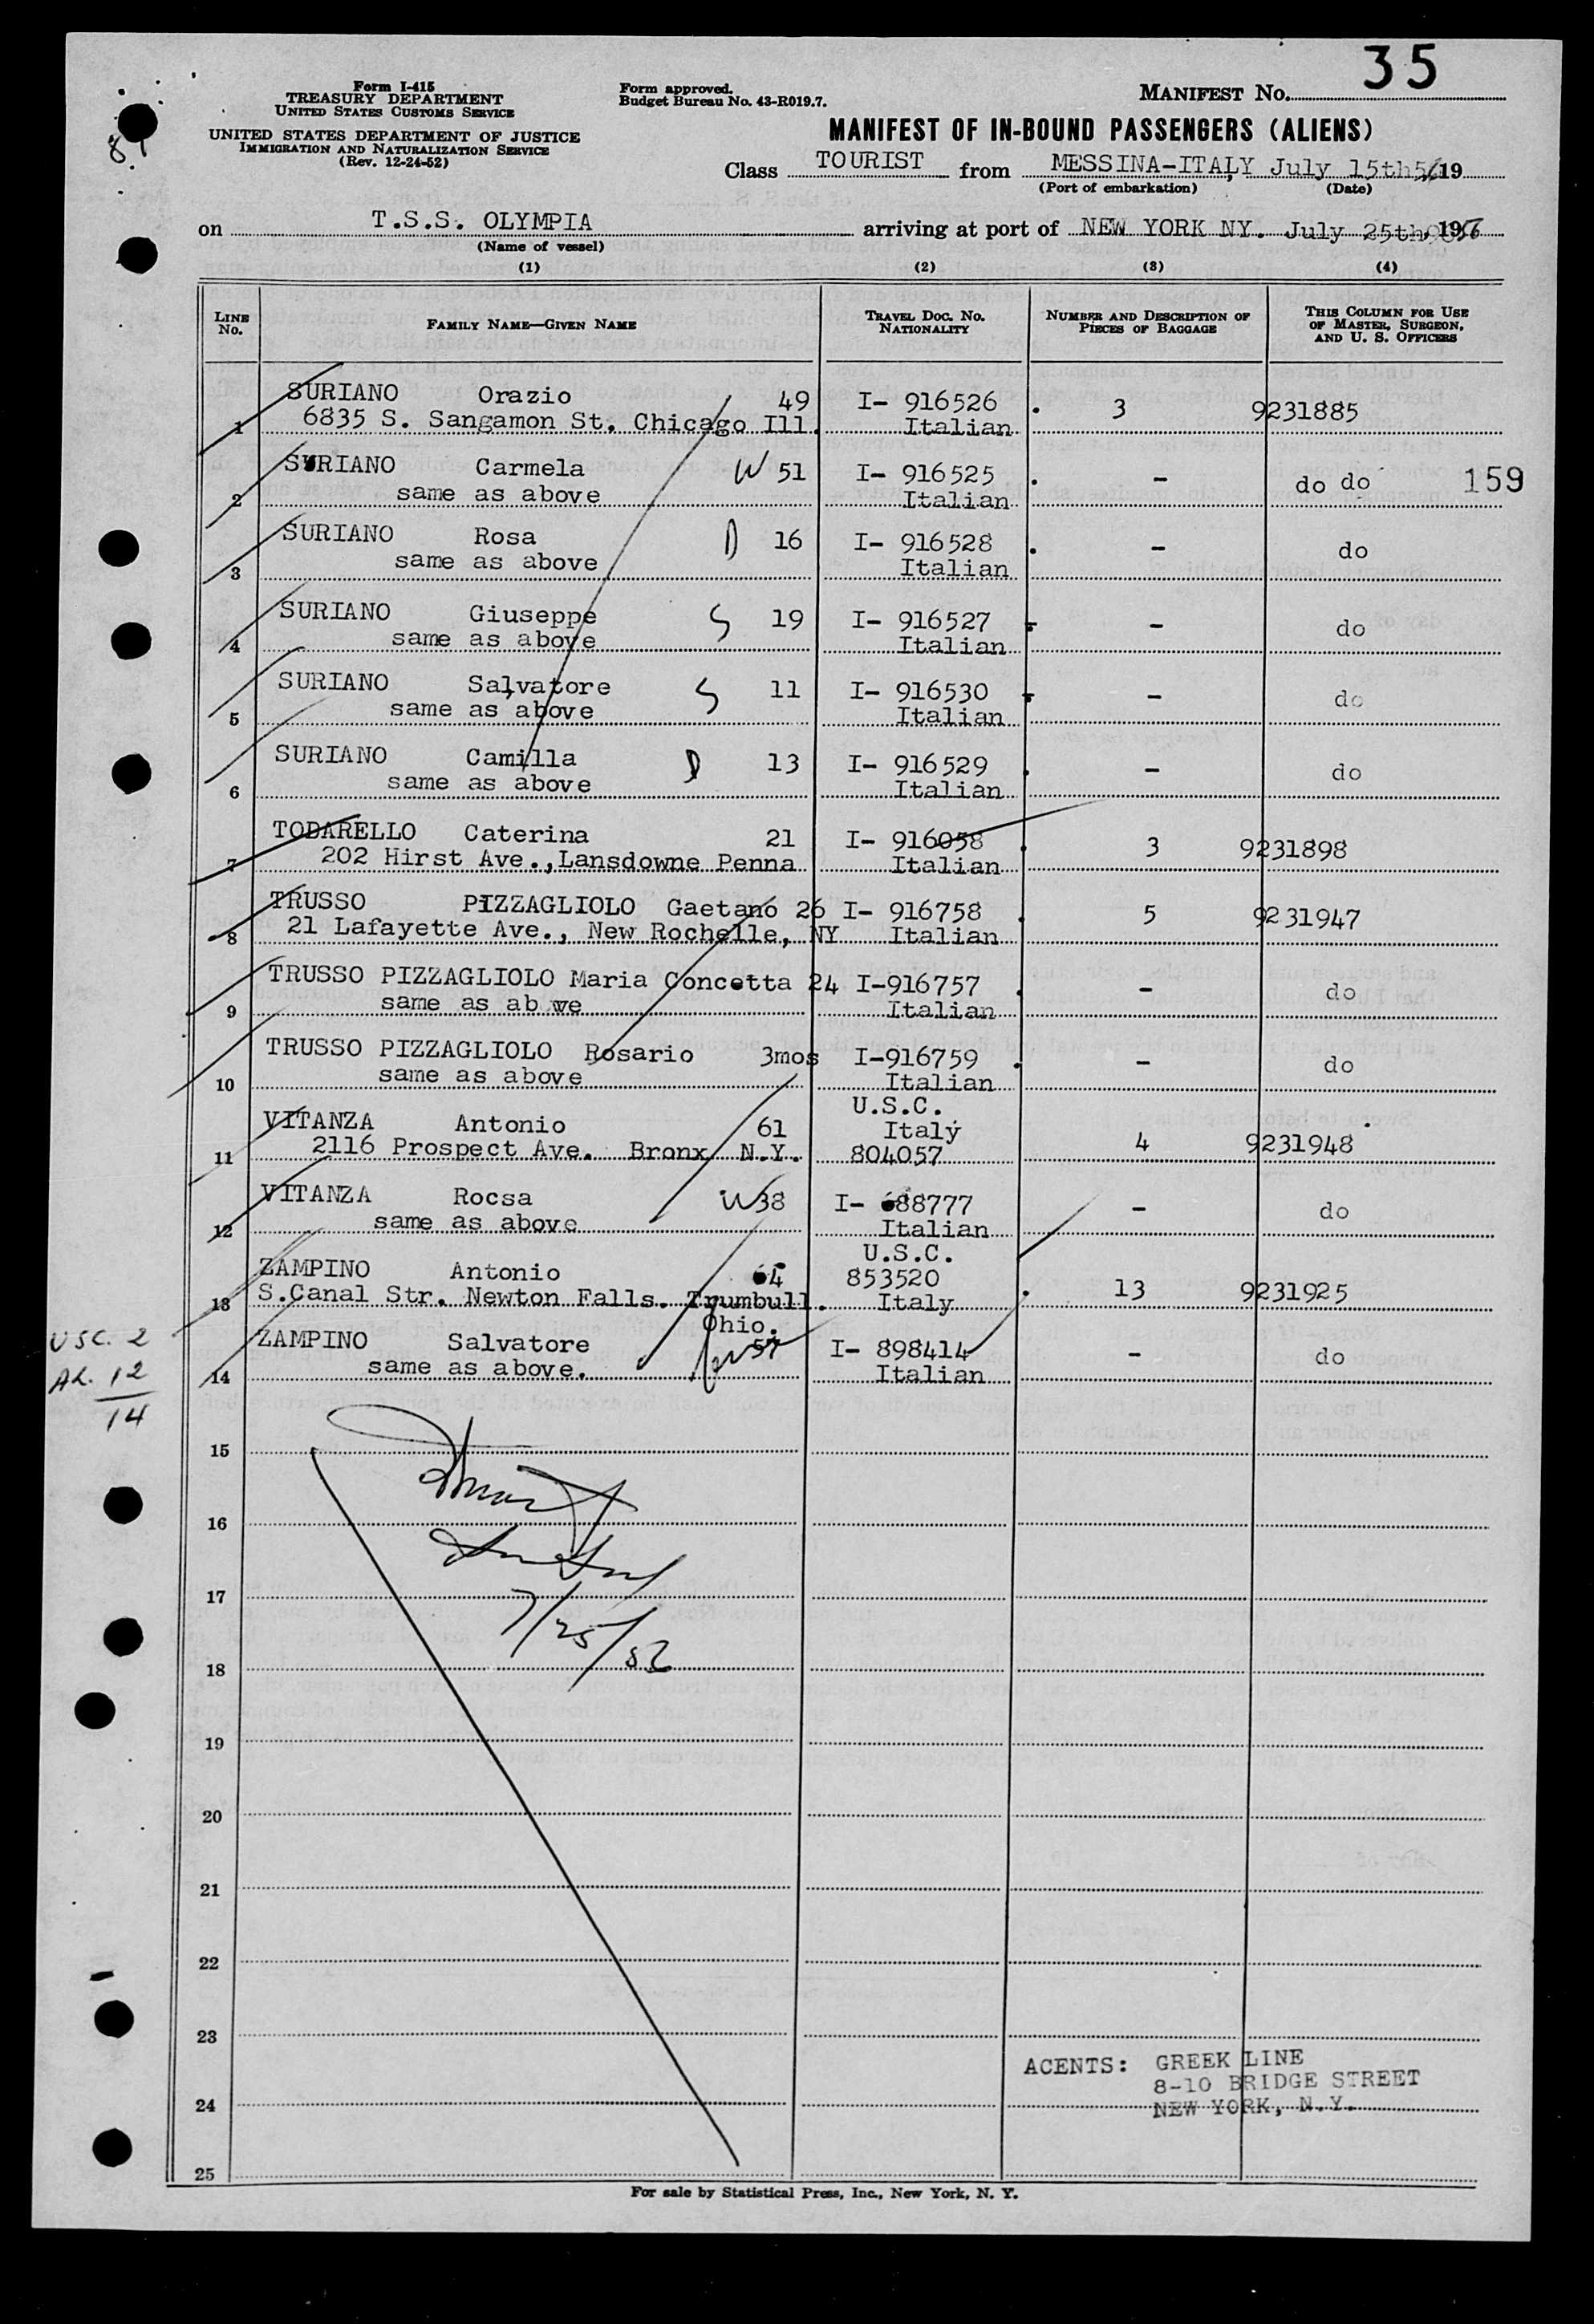 35
Form I-415
TREASURY DEPARTMENT
UNITED STATES CUSTOMS SERVICE
UNITED STATES DEPARTMENT OF JUSTICE
IMMIGRATION AND NATURALIZATION SERVICE
(Rev. 12-24-52)
Form approved.
Budget Bureau No. 43-R019.7.
MANIFEST No.
MANIFEST OF IN-BOUND PASSENGERS (ALIENS)
Class TOURIST from MESSINA-ITALY, July 15th 56 19
(Port of embarkation) (Date)
on T.S.S. OLYMPIA arriving at port of NEW YORK NY. July 25th, 1956
(Name of vessel)
(1) (2) (3) (4)
LINE No. FAMILY NAME—GIVEN NAME TRAVEL DOC. No. NATIONALITY NUMBER AND DESCRIPTION OF PIECES OF BAGGAGE THIS COLUMN FOR USE OF MASTER, SURGEON, AND U. S. OFFICERS
SURIANO Orazio 49 I- 916526 3 9231885
1 6835 S. Sangamon St. Chicago Ill. Italian
SURIANO Carmela W 51 I- 916525 - do do 159
2 same as above Italian
SURIANO Rosa D 16 I- 916528 - do
3 same as above Italian
SURIANO Giuseppe S 19 I- 916527 - do
4 same as above Italian
SURIANO Salvatore S 11 I- 916530 - do
5 same as above Italian
SURIANO Camilla D 13 I- 916529 - do
6 same as above Italian
TODARELLO Caterina 21 I- 916058 3 9231898
7 202 Hirst Ave.,Lansdowne Penna Italian
TRUSSO PIZZAGLIOLO Gaetano 26 I- 916758 5 9231947
8 21 Lafayette Ave., New Rochelle, NY Italian
TRUSSO PIZZAGLIOLO Maria Concetta 24 I-916757 - do
9 same as ab we Italian
TRUSSO PIZZAGLIOLO Rosario 3mos I-916759 - do
10 same as above Italian
U.S.C.
VITANZA Antonio 61 Italy
11 2116 Prospect Ave. Bronx N.Y. 804057 4 9231948
VITANZA Rocsa W38 I- 688777 - do
12 same as above Italian
U.S.C.
ZAMPINO Antonio 64 853520 13 9231925
13 S.Canal Str. Newton Falls. Trumbull. Italy
Ohio.
ZAMPINO Salvatore 57 I- 898414 - do
14 same as above. Italian
USC. 2
AL. 12
14
15
16
17
7/25/56
18
19
20
21
22
23
ACENTS: GREEK LINE
8-10 BRIDGE STREET
24 NEW YORK, N.Y.
25
For sale by Statistical Press, Inc., New York, N. Y.